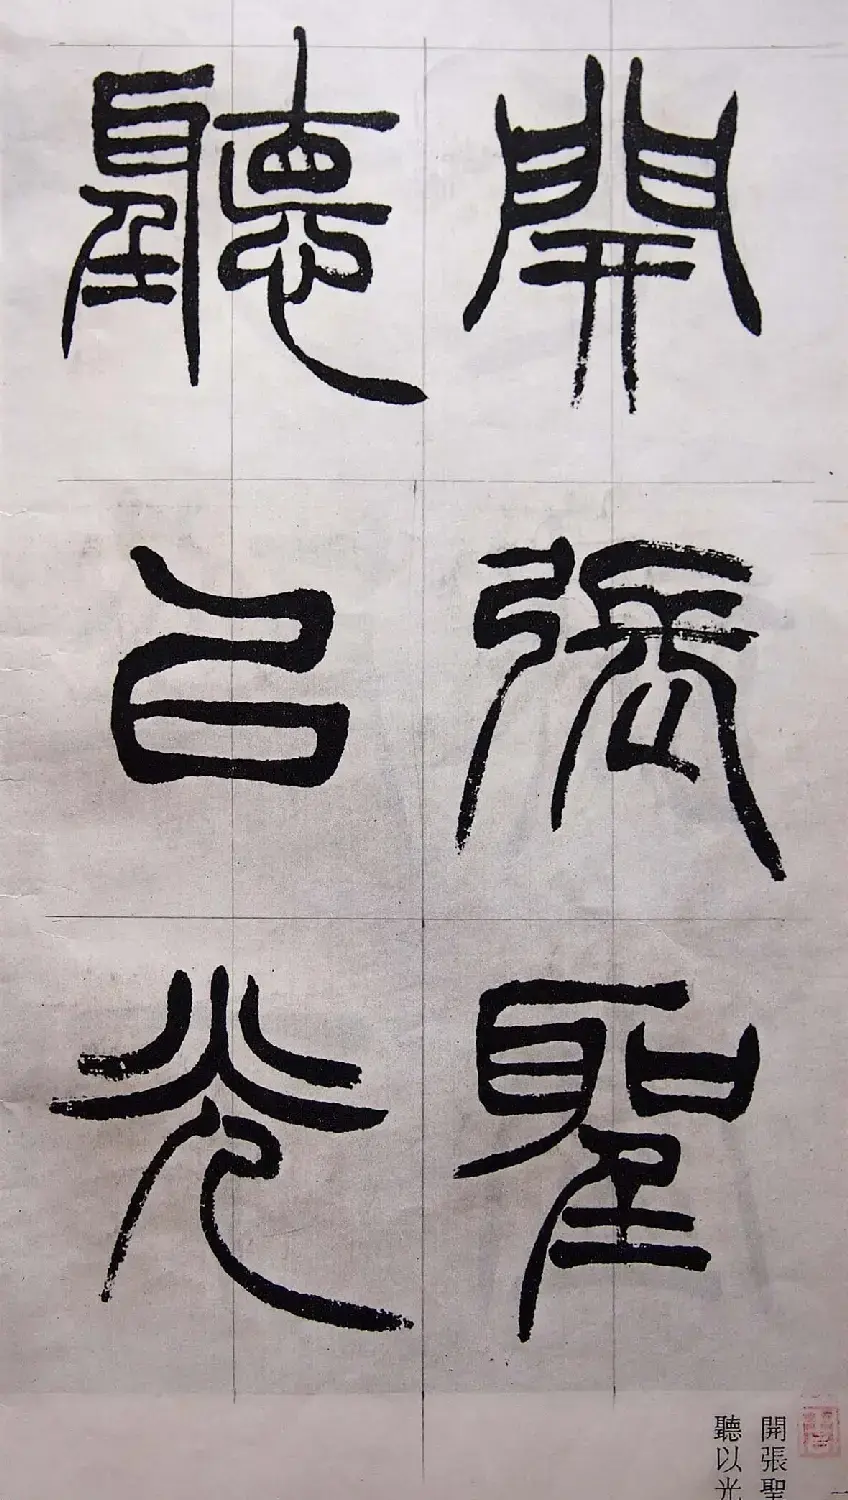 開張聖
聽以光
開張聖
聽以光